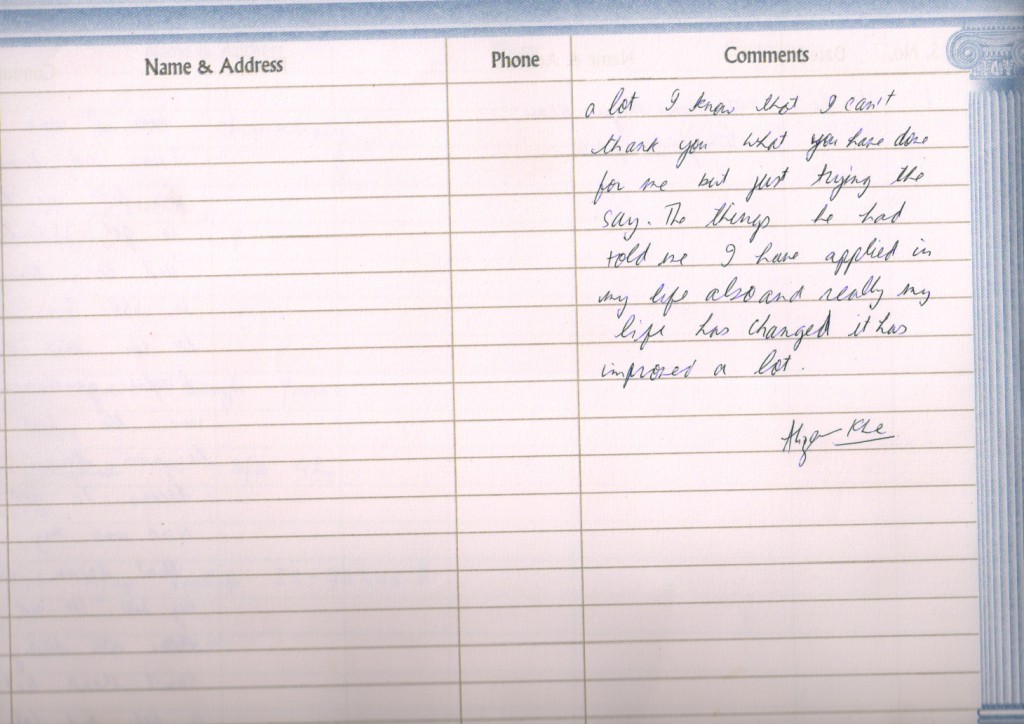 Name & Address
Phone
Comments
a lot I know that I can't
thank you what you have done
for me but just trying the
say. The things he had
told me I have applied in
my life also and really my
life has changed it has
improved a lot.